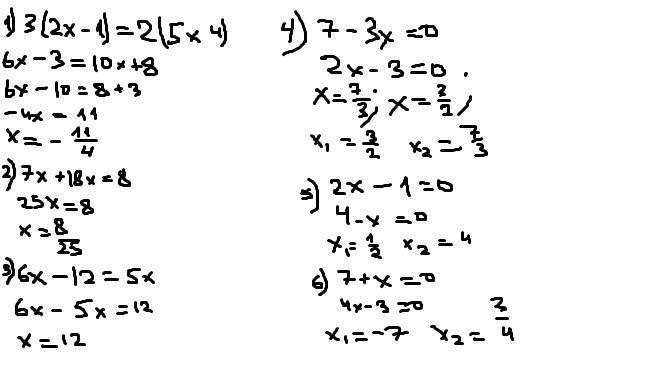 1) 3(2x-1)=2(5x 4)
6x-3=10x+8
6x-10=8+3
-4x=11
x=-11/4
2) 7x+18x=8
25x=8
x=8/25
3) 6x-12=5x
6x-5x=12
x=12
4) 7-3x=0
2x-3=0.
x=7/3; x=3/2;
x₁=3/2 x₂=7/3
5) 2x-1=0
4-x=0
x₁=1/2 x₂=4
6) 7+x=0
4x-3=0
x₁=-7 x₂=3/4